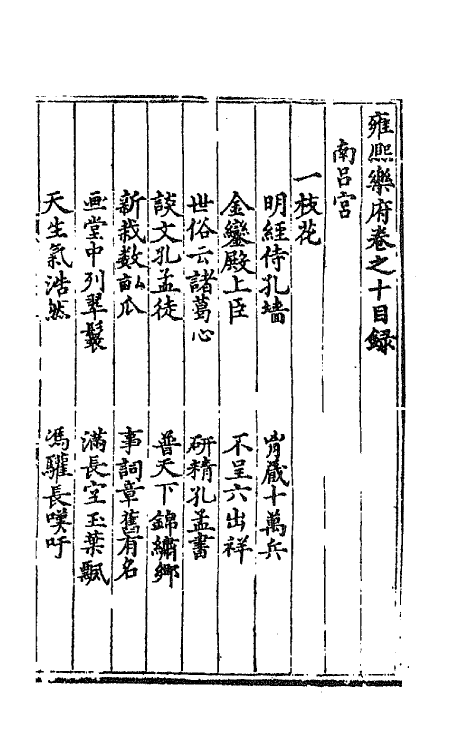 雍熙樂府卷之十目録
南呂宮
一枝花
明經侍孔墻 胷藏十萬兵
金鑾殿上臣 不呈六出祥
世俗云諸葛心 研精孔孟書
談文孔孟徒 普天下錦繡鄉
新栽数畝瓜 事詞章舊有名
画堂中列翠鬟 滿長空玉葉飄
天生氣浩然 馮驩長嘆吁